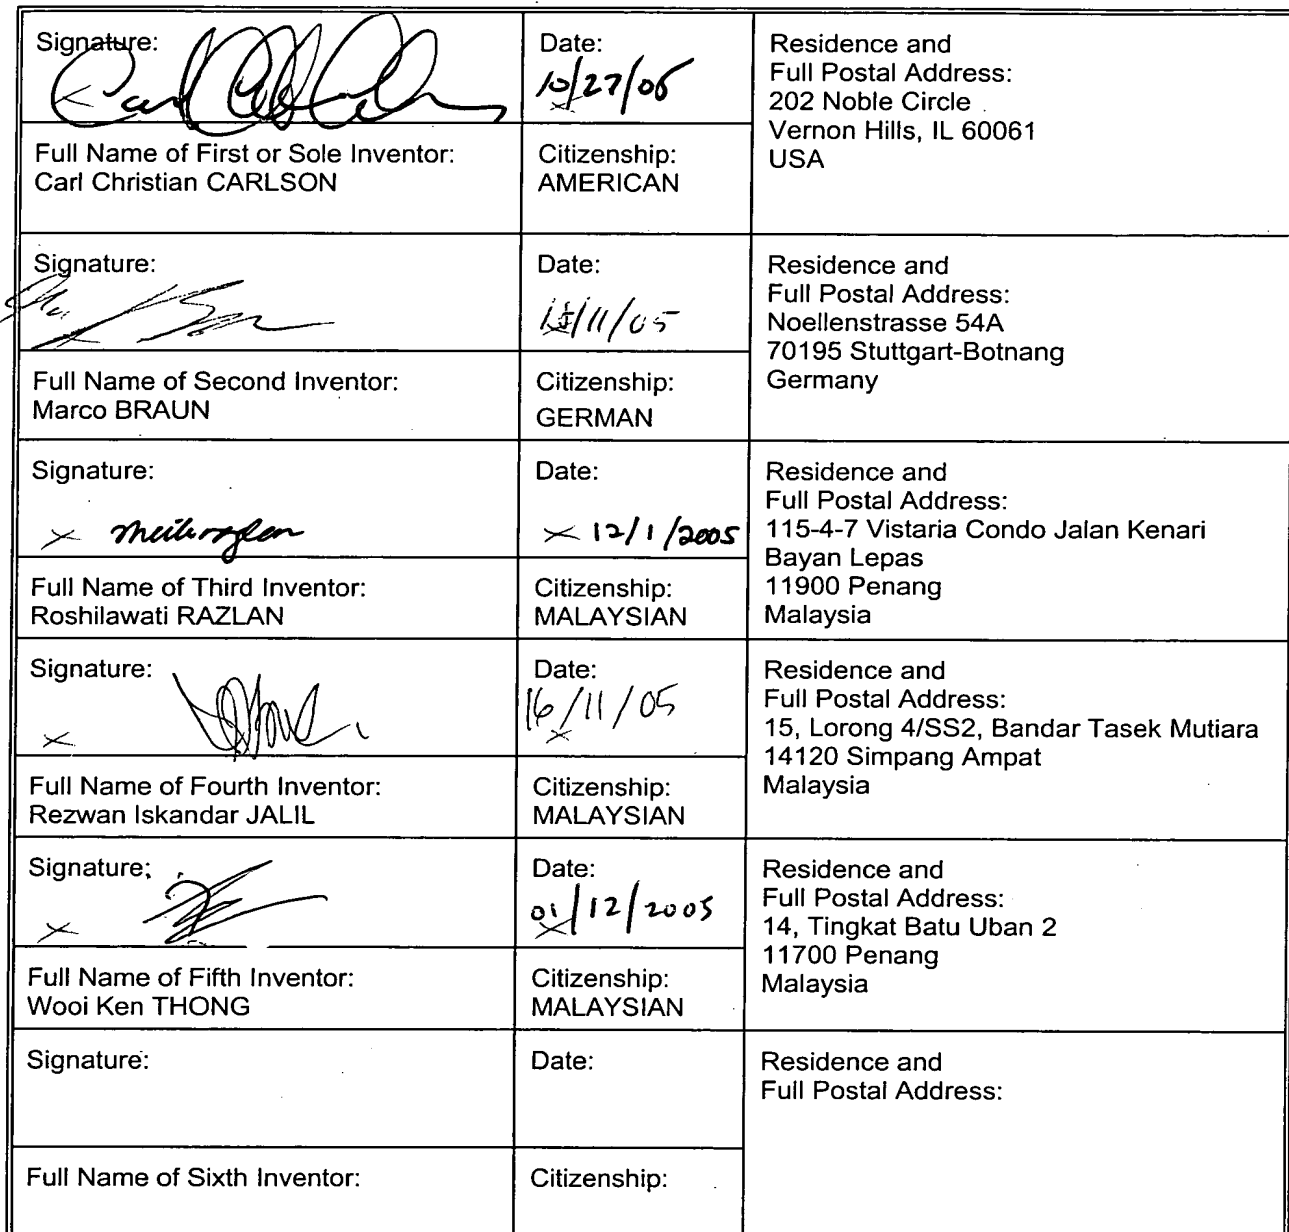 Signature:
Date:
10/27/05
Residence and
Full Postal Address:
202 Noble Circle
Vernon Hills, IL 60061
USA
Full Name of First or Sole Inventor:
Carl Christian CARLSON
Citizenship:
AMERICAN
Signature:
Date:
Residence and
Full Postal Address:
Noellenstrasse 54A
70195 Stuttgart-Botnang
Germany
Full Name of Second Inventor:
Marco BRAUN
Citizenship:
GERMAN
Signature:
Date:
12/1/2005
Residence and
Full Postal Address:
115-4-7 Vistaria Condo Jalan Kenari
Bayan Lepas
11900 Penang
Malaysia
Full Name of Third Inventor:
Roshilawati RAZLAN
Citizenship:
MALAYSIAN
Signature:
Date:
16/11/05
Residence and
Full Postal Address:
15, Lorong 4/SS2, Bandar Tasek Mutiara
14120 Simpang Ampat
Malaysia
Full Name of Fourth Inventor:
Rezwan Iskandar JALIL
Citizenship:
MALAYSIAN
Signature:
Date:
01/12/2005
Residence and
Full Postal Address:
14, Tingkat Batu Uban 2
11700 Penang
Malaysia
Full Name of Fifth Inventor:
Wooi Ken THONG
Citizenship:
MALAYSIAN
Signature:
Date:
Residence and
Full Postal Address:
Full Name of Sixth Inventor:
Citizenship: